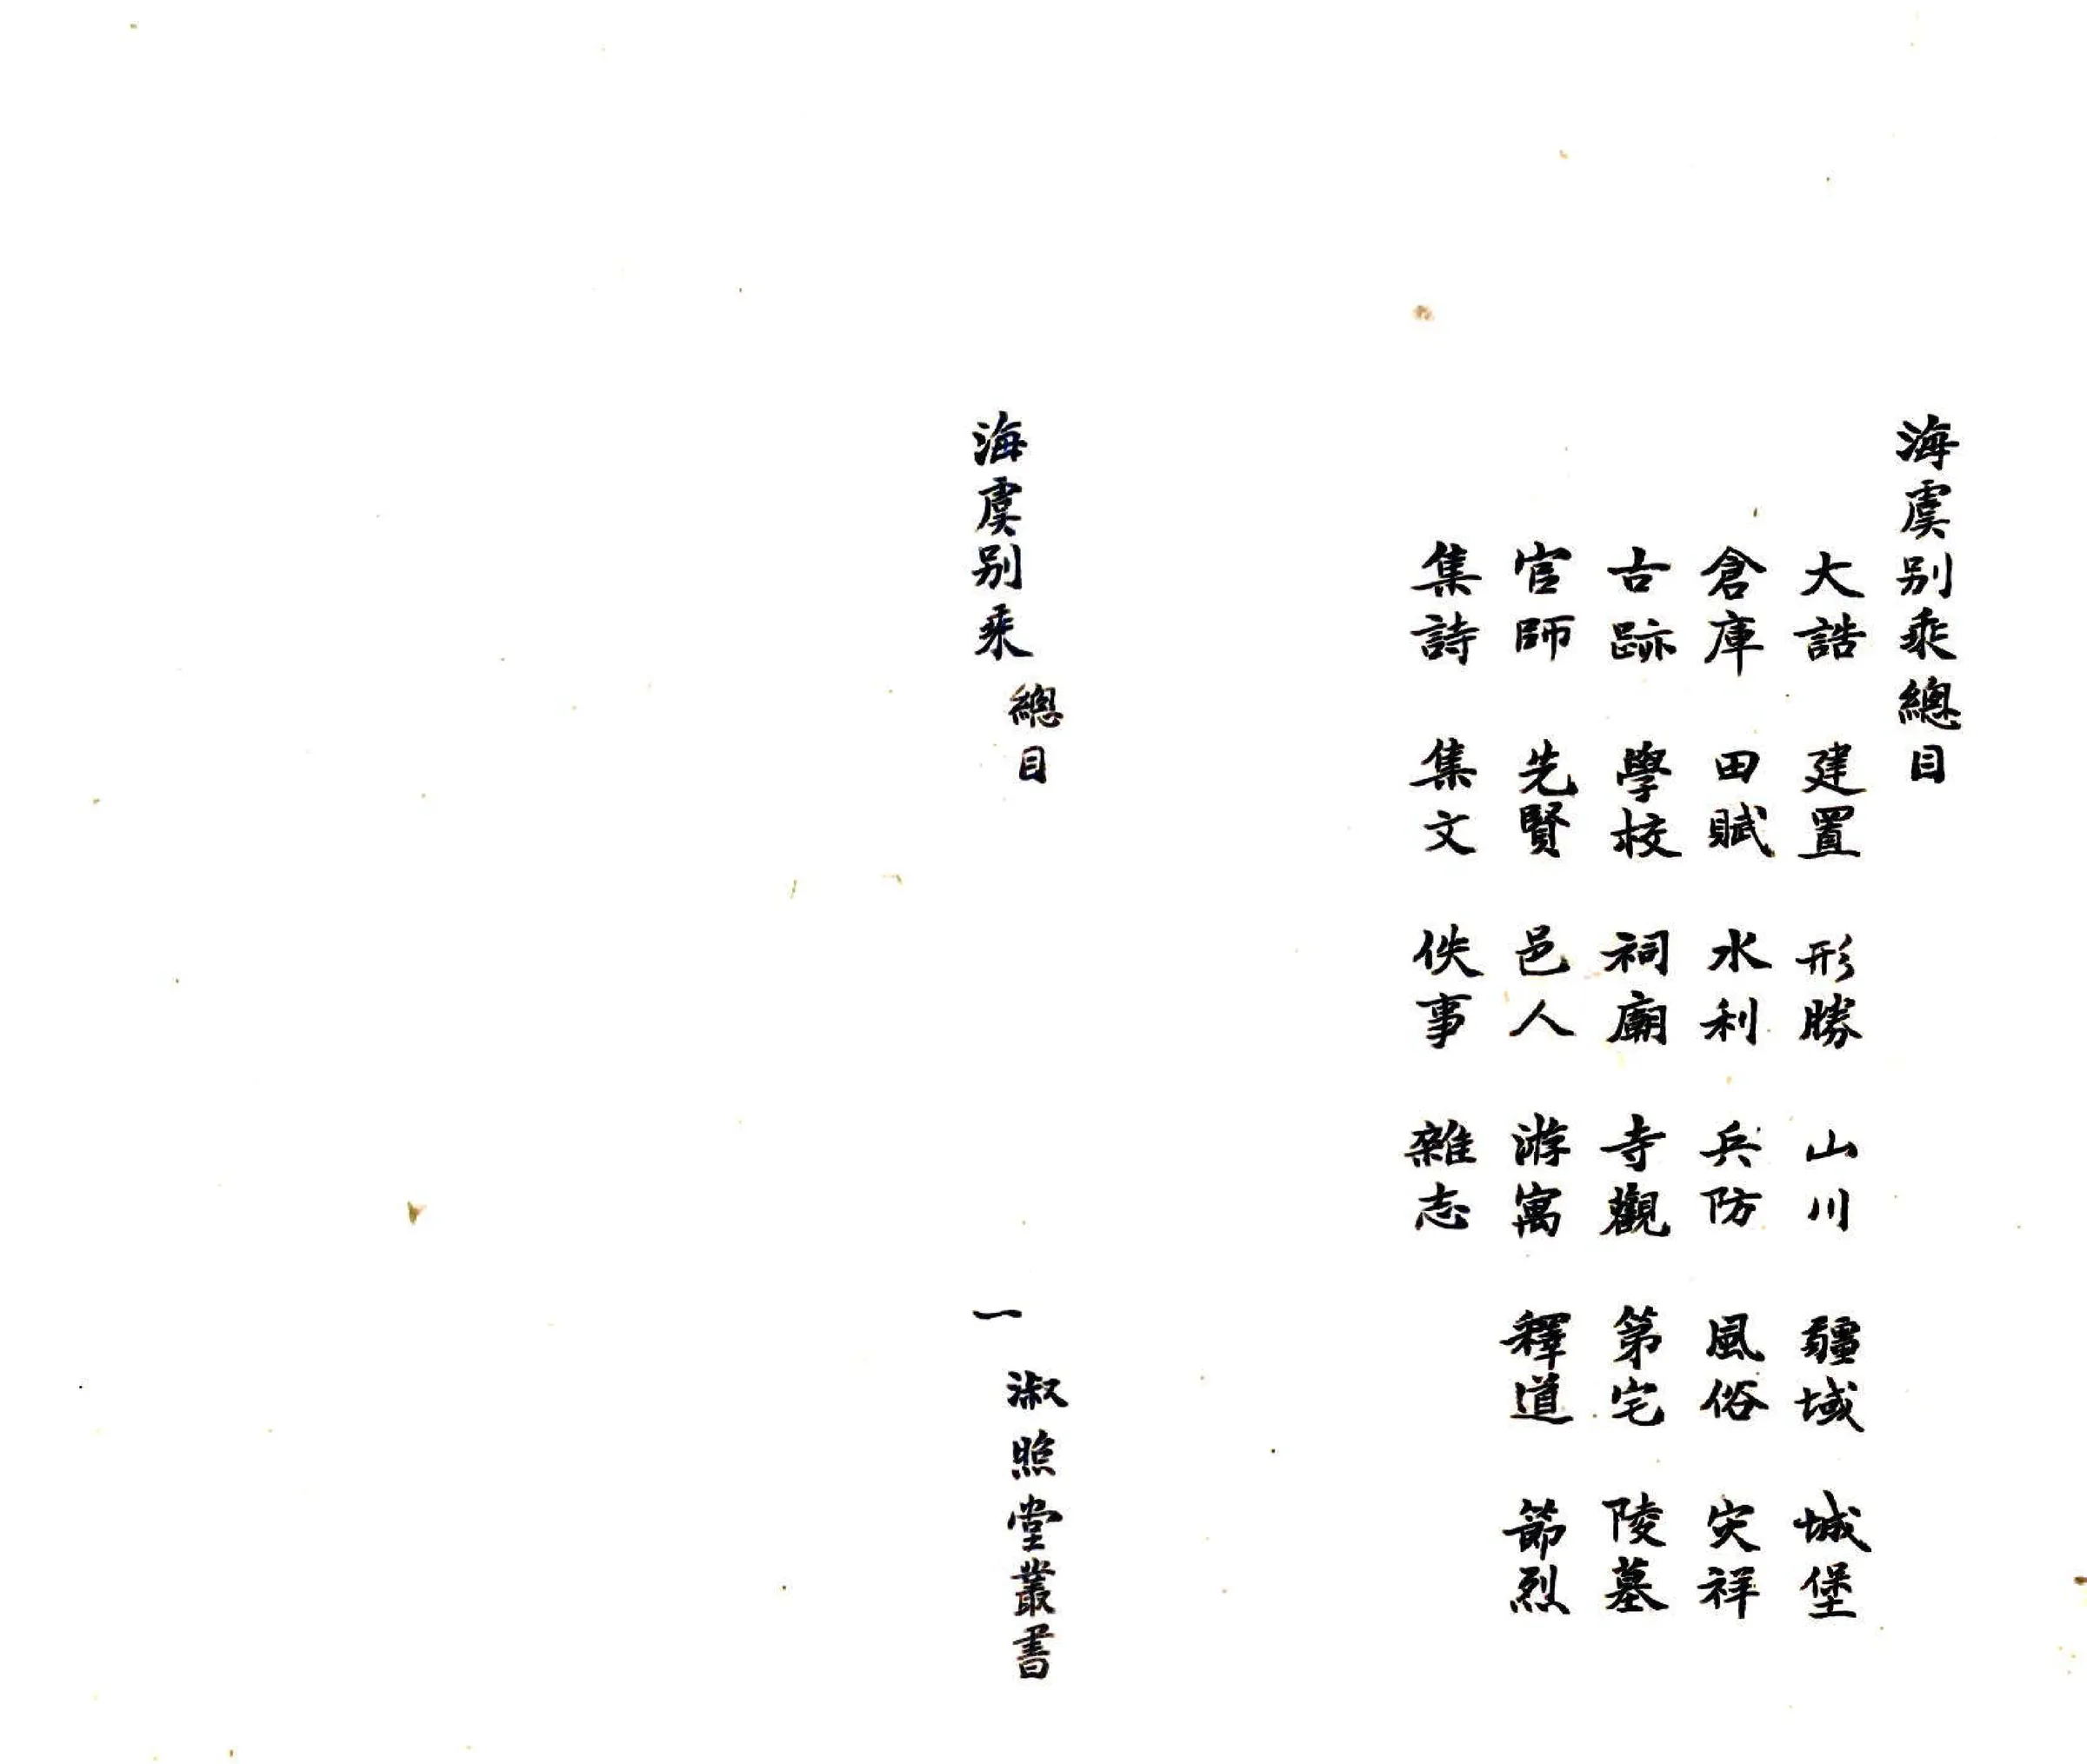 海虞别乘總目
大誥 建置 形勝 山川 疆域 城堡
倉庫 田賦 水利 兵防 風俗 灾祥
古跡 學校 祠廟 寺觀 第宅 陵墓
官師 先賢 邑人 游寓 釋道 節烈
集詩 集文 佚事 雜志
海虞别乘 總目 一 淑照堂叢書